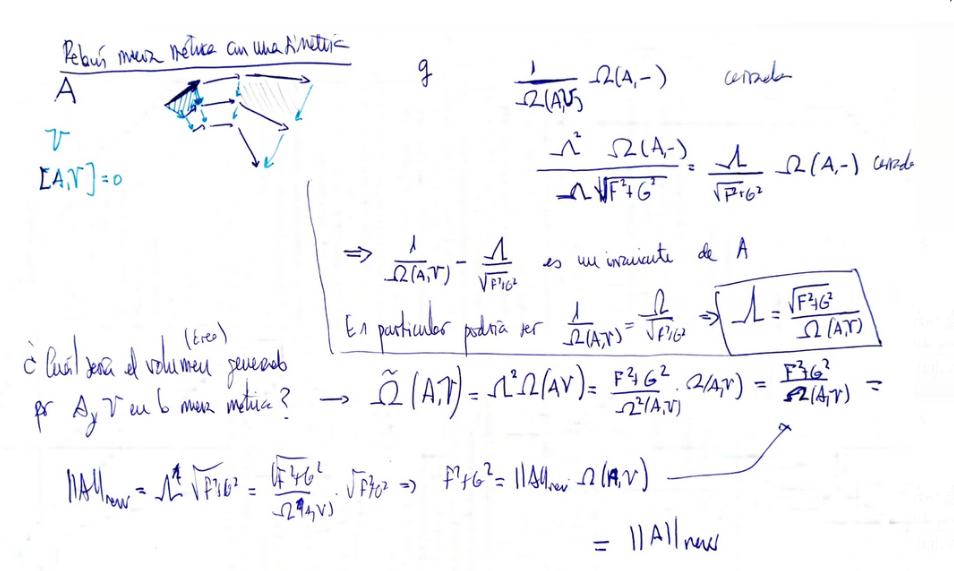 nueva métrica con una simetría
A
g
1/Ω(A,V) Ω(A,-) cerrada
V
[A,V]=0
Λ² Ω(A,-) / Λ√F²+G² = Λ/√F²+G² Ω(A,-) cerrada
⇒ 1/Ω(A,V) - Λ/√F²+G² es un invariante de A
En particular podría ser 1/Ω(A,V) = Ω/√F²+G² ⇒ Λ = √F²+G²/Ω(A,V)
¿Cuál será el volumen (área) generado
por A y V en la nueva métrica? → Ω̃(A,V) = Λ²Ω(AV) = F²+G²/Ω²(A,V) · Ω(A,V) = F²+G²/Ω(A,V) =
||A||new = Λ √F²+G² = √F²+G²/Ω(A,V) · √F²+G² ⇒ F²+G² = ||A||new Ω(A,V)
= ||A||new